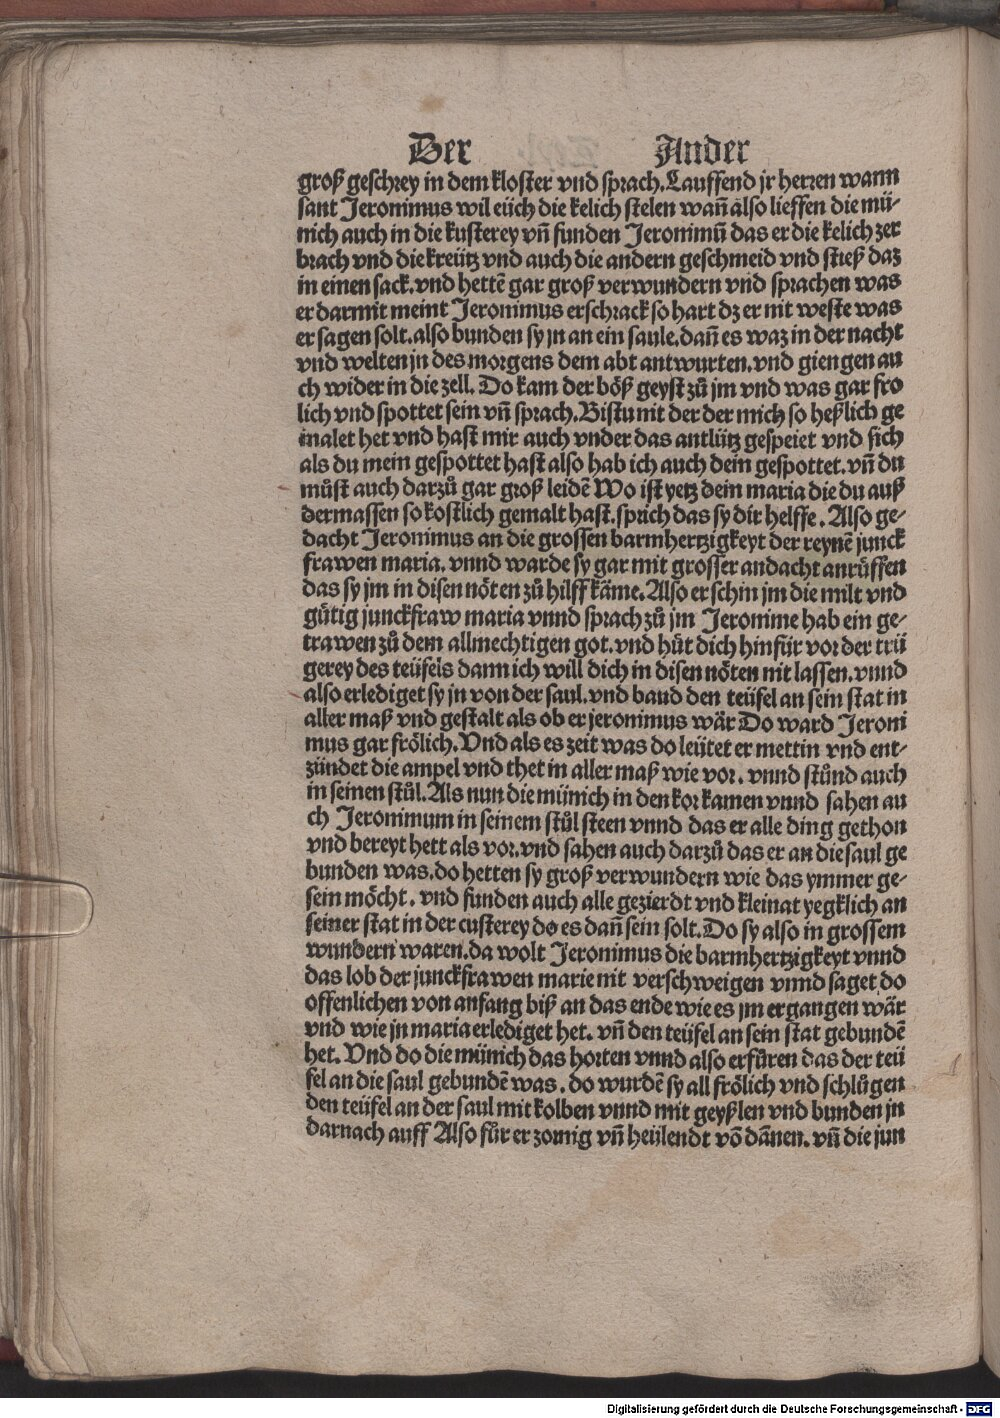 Der Ander
groß geschrey in dem kloster vnd sprach. Lauffend jr herren wann
sant Jeronimus wil eüch die kelich stelen wañ also lieffen die mü-
nich auch in die kusterey vñ funden Jeronimũ das er die kelich zer
brach vnd die kreütz vnd auch die andern geschmeid vnd stieß daz
in einen sack. vnd hettẽ gar groß verwundern vnd sprachen was
er darmit meint Jeronimus erschrack so hart dz er nit weste was
er sagen solt. also bunden sy jn an ein saule. dañ es waz in der nacht
vnd welten jn des morgens dem abt antwurten. vnd giengen au
ch wider in die zell. Do kam der böß geyst zů jm vnd was gar fro
lich vnd spottet sein vñ sprach. Bistu nit der der mich so heßlich ge
malet het vnd hast mir auch vnder das antlütz gespeiet vnd sich
als du mein gespottet hast also hab ich auch dein gespottet. vñ du
můst auch darzů gar groß leidẽ Wo ist yetz dein maria die du auß
dermassen so kostlich gemalt hast. sprich das sy dir helffe. Also ge-
dacht Jeronimus an die grossen barmhertzigkeyt der reynẽ junck
frawen maria. vnnd warde sy gar mit grosser andacht anrůffen
das sy jm in disen nöten zů hilff käme. Also erschin jm die milt vnd
gůtig junckfraw maria vnnd sprach zů jm Jeronime hab ein ge-
trawen zů dem allmechtigen got. vnd hüt dich hinfür vor der trü
gerey des teüfels dann ich will dich in disen nöten nit lassen. vnnd
also erlediget sy jn von der saul. vnd band den teüfel an sein stat in
aller maß vnd gestalt als ob er jeronimus wär Do ward Jeroni
mus gar frölich. Vnd als es zeit was do leütet er mettin vnd ent-
zündet die ampel vnd thet in aller maß wie vor. vnnd stůnd auch
in seinen stůl. Als nun die münich in den kor kamen vnnd sahen au
ch Jeronimum in seinem stůl steen vnnd das er alle ding gethon
vnd bereyt hett als vor. vnd sahen auch darzů das er an die saul ge
bunden was. do hetten sy groß verwundern wie das ymmer ge-
sein möcht. vnd funden auch alle gezierdt vnd kleinat yegklich an
seiner stat in der custerey do es dañ sein solt. Do sy also in grossem
wundern waren. da wolt Jeronimus die barmhertzigkeyt vnnd
das lob der junckfrawen marie nit verschweigen vnnd saget do
offenlichen von anfang biß an das ende wie es jm ergangen wär
vnd wie jn maria erlediget het. vñ den teüfel an sein stat gebundẽ
het. Vnd do die münich das horten vnnd also erfůren das der teü
fel an die saul gebundẽ was. do wurdẽ sy all frölich vnd schlůgen
den teüfel an der saul mit kolben vnnd mit geyßlen vnd bunden jn
darnach auff Also fůr er zornig vñ heülendt võ dãnen. vñ die jun
Digitalisierung gefördert durch die Deutsche Forschungsgemeinschaft - DFG